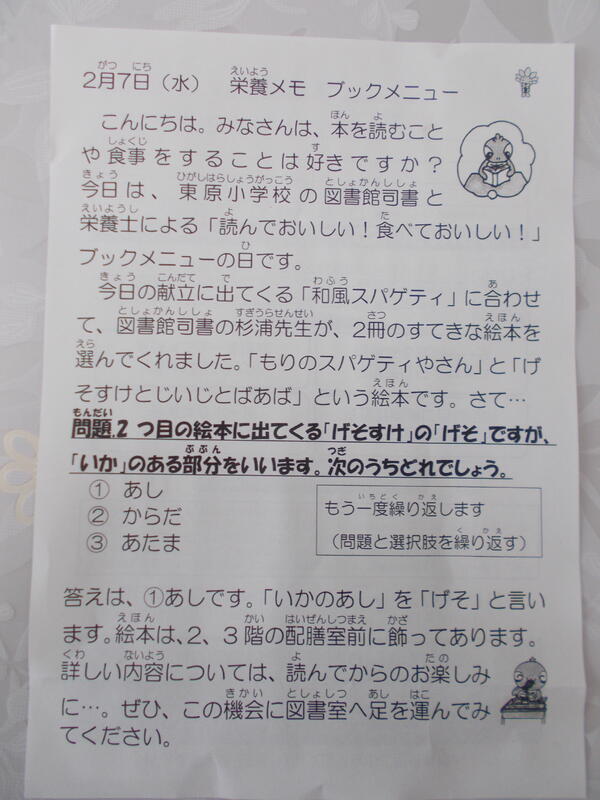 2月7日（水）　栄養メモ　ブックメニュー
こんにちは。みなさんは、本を読むこと
や食事をすることは好きですか？
今日は、東原小学校の図書館司書と
栄養士による「読んでおいしい！食べておいしい！」
ブックメニューの日です。
今日の献立に出てくる「和風スパゲティ」に合わせ
て、図書館司書の杉浦先生が、2冊のすてきな絵本を
選んでくれました。「もりのスパゲティやさん」と「げ
そすけとじいじとばあば」という絵本です。さて…
問題.2つ目の絵本に出てくる「げそすけ」の「げそ」ですが、
「いか」のある部分をいいます。次のうちどれでしょう。
① あし
② からだ
③ あたま
もう一度繰り返します
（問題と選択肢を繰り返す）
答えは、①あしです。「いかのあし」を「げそ」と言い
ます。絵本は、2、3階の配膳室前に飾ってあります。
詳しい内容については、読んでからのお楽しみ
に…。ぜひ、この機会に図書室へ足を運んでみ
てください。